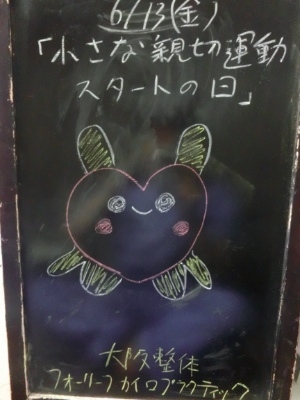 6/13(金)
「小さな親切運動
スタートの日」
大阪整体
フォーリーフカイロプラクティック